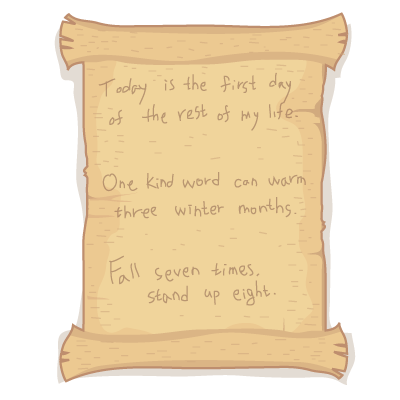 Today is the first day
of the rest of my life.
One kind word can warm
three winter months.
Fall seven times.
stand up eight.